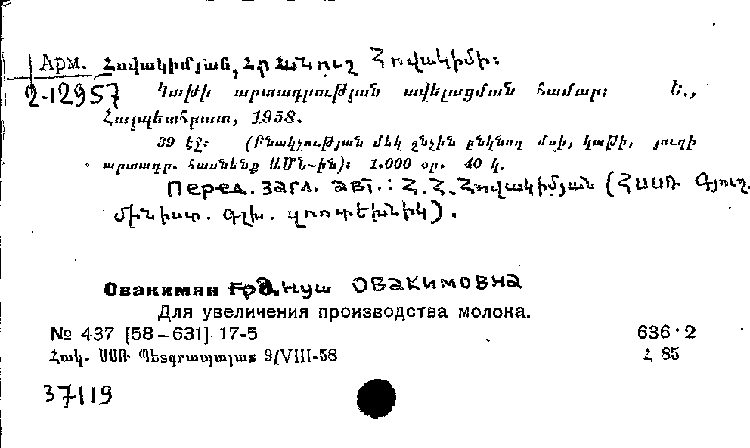 Арм. Հովակիմյան, Հրանուշ Հովակիմի։
2-12957 Կաթի արտադրության ավելացման համար։ Ե.,
Հայպետհրատ, 1958.
39 էջ։ (Բնակչության մեկ շնչին ընկնող մսի, կաթի, յուղի
արտադր. հասնենք ԱՄՆ-ին)։ 1.000 օր. 40 կ.
Перед. загл. авт.: Հ. Հ. Հովակիմյան (ՀՍՍՌ Գյուղ.
մինիստ. գլխ. զոոտեխնիկ).
Овакимян Грануш Овакимовна
Для увеличения производства молока.
№ 437 [58-631] 17-5 636·2
Հայկ. ՍՍՌ Պետգրապալատ 9/VIII-58 Հ 85
37119